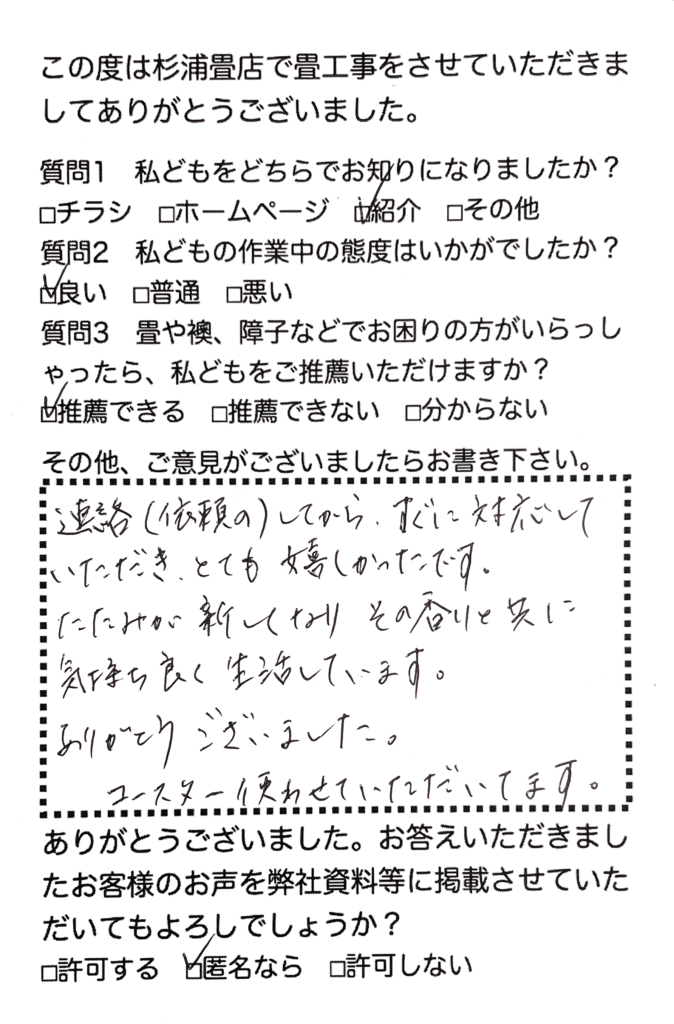 この度は杉浦畳店で畳工事をさせていただきま
してありがとうございました。
質問1　私どもをどちらでお知りになりましたか？
□チラシ　□ホームページ　☑紹介　□その他
質問2　私どもの作業中の態度はいかがでしたか？
☑良い　□普通　□悪い
質問3　畳や襖、障子などでお困りの方がいらっし
ゃったら、私どもをご推薦いただけますか？
☑推薦できる　□推薦できない　□分からない
その他、ご意見がございましたらお書き下さい。
連絡(依頼の)してから、すぐに対応して
いただき、とても嬉しかったです。
たたみが新しくなり その香りと共に
気持ち良く生活しています。
ありがとうございました。
コースター使わせていただいてます。
ありがとうございました。お答えいただきまし
たお客様のお声を弊社資料等に掲載させていた
だいてもよろしでしょうか？
□許可する　☑匿名なら　□許可しない